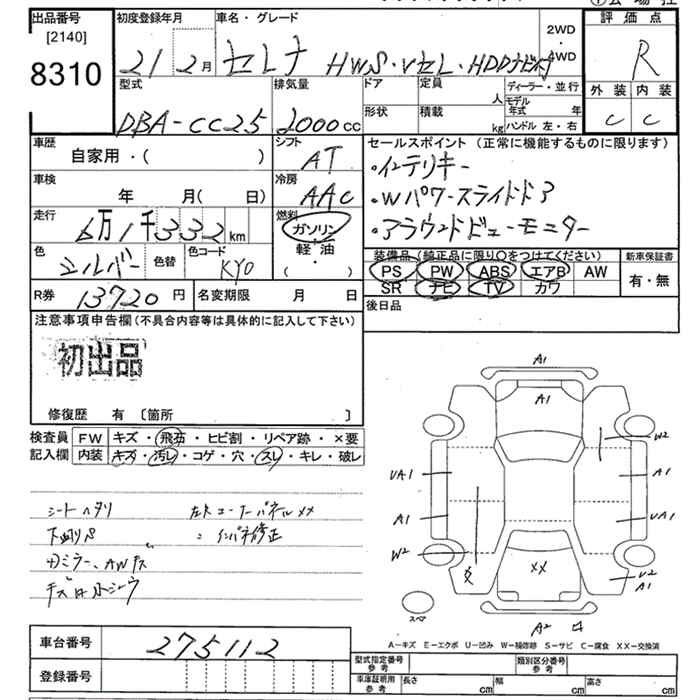 出品番号
[2140]
8310
初度登録年月
21 2月
車名・グレード
セレナ HWS・Vセレ・HDDナビパケ
2WD
4WD
評価点
R
外装 内装
C C
型式
DBA-CC25
排気量
2000cc
ドア
形状
定員
人
積載
kg
ディーラー・並行
モデル年式 年
ハンドル 左・右
車歴
自家用・( )
シフト
AT
車検
年 月( 日)
冷房
AAC
走行
6万1千332km
燃料
ガソリン
軽・油
( )
色
シルバー
色替
色コード
KY0
R券 13720円
名変期限 月 日
セールスポイント (正常に機能するものに限ります)
・インテリキー
・Wパワースライドドア
・アラウンドビューモニター
装備品 (純正品に限り○をつけてください)
PS PW ABS エアB AW
SR ナビ TV カワ
新車保証書
有・無
後日品
注意事項申告欄(不具合内容等は具体的に記入して下さい)
初出品
修復歴 有 〔箇所 〕
検査員記入欄
FW キズ・飛石・ヒビ割・リペア跡・×要
内装 キズ・汚レ・コゲ・穴・スレ・キレ・破レ
シートヘタリ
左右コーナーパネルXX
:インパネ修正
A1
A1
W2
UA1
A1
A1
UA1
W2
XX
U2
A1
A2
スペア
A-キズ E-エクボ U-凹み W-補修跡 S-サビ C-腐食 XX-交換済
車台番号 275112
登録番号
型式指定番号 参考
類別区分番号 参考
車庫証明用 参考
長さ cm
幅 cm
高さ cm